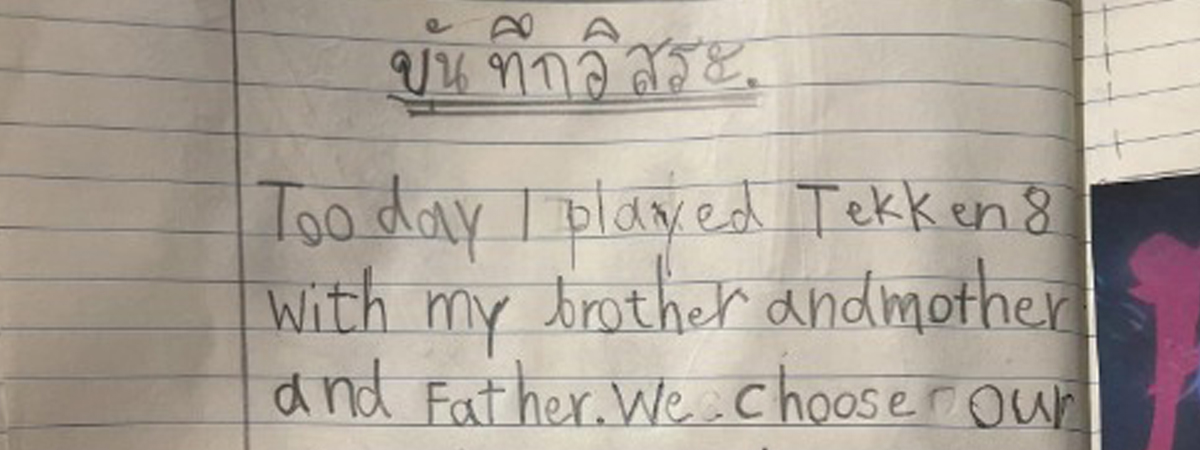 บันทึกอิสระ.
Too day I played Tekken 8
with my brother and mother
and Father. We choose our